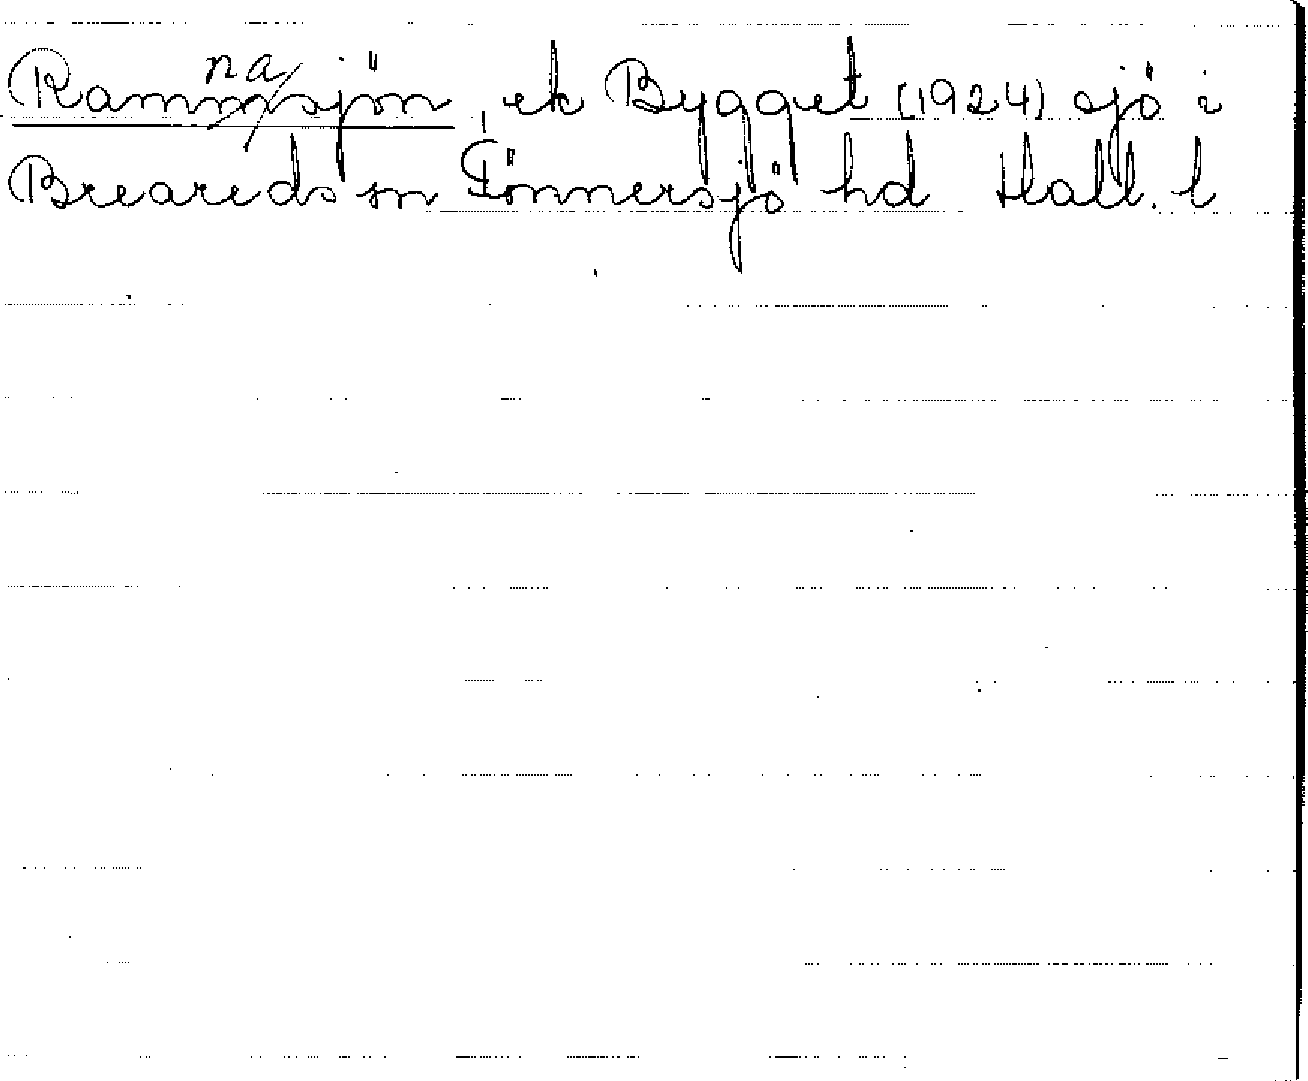 na
Rammsjön ek Bygget (1924) sjö i
Breareds sn Tönnersjö hd Hall. l